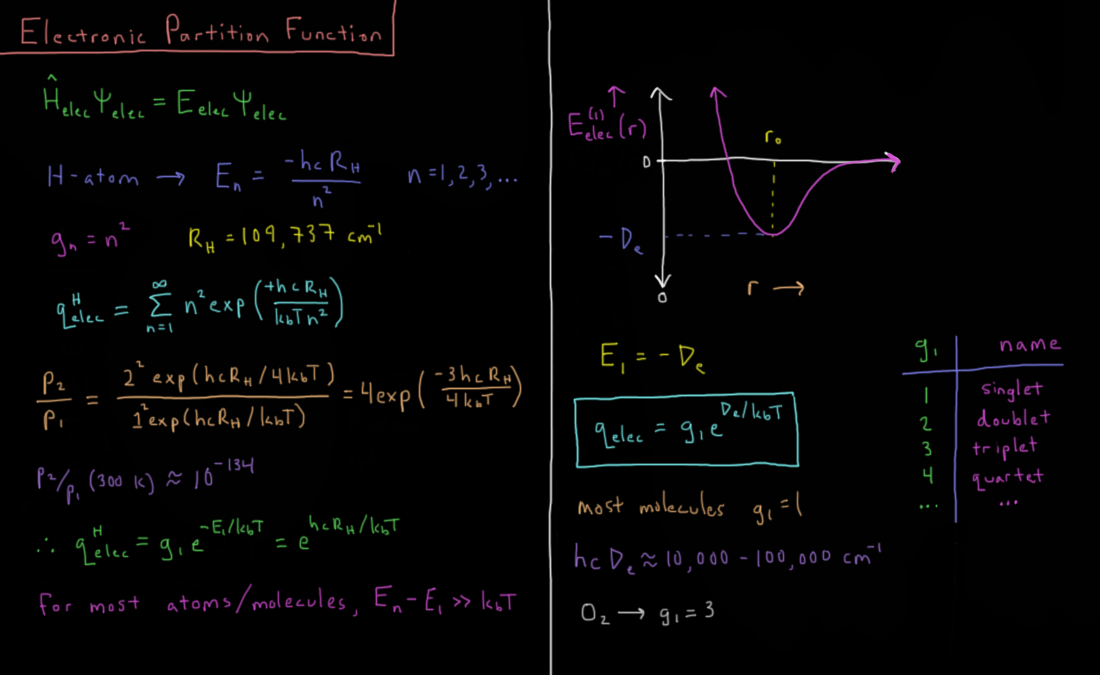 Electronic Partition Function
Ĥ_elec Ψ_elec = E_elec Ψ_elec
H-atom → E_n = -hcR_H / n²   n = 1, 2, 3, ...
g_n = n²   R_H = 109,737 cm⁻¹
q_elec^H = ∑_{n=1}^{∞} n² exp(+hcR_H / k_bT n²)
P₂/P₁ = 2² exp(hcR_H/4k_bT) / 1² exp(hcR_H/k_bT) = 4 exp(-3hcR_H / 4k_bT)
P₂/P₁ (300 K) ≈ 10⁻¹³⁴
∴ q_elec^H = g₁ e^{-E₁/k_bT} = e^{hcR_H/k_bT}
For most atoms/molecules, E_n - E₁ >> k_bT
↑
E_elec^(1)(r)
r₀
0
-D_e
0
r →
E₁ = -D_e
q_elec = g₁ e^{D_e/k_bT}
most molecules g₁ = 1
hc D_e ≈ 10,000 - 100,000 cm⁻¹
O₂ → g₁ = 3
g₁ name
1 singlet
2 doublet
3 triplet
4 quartet
... ...